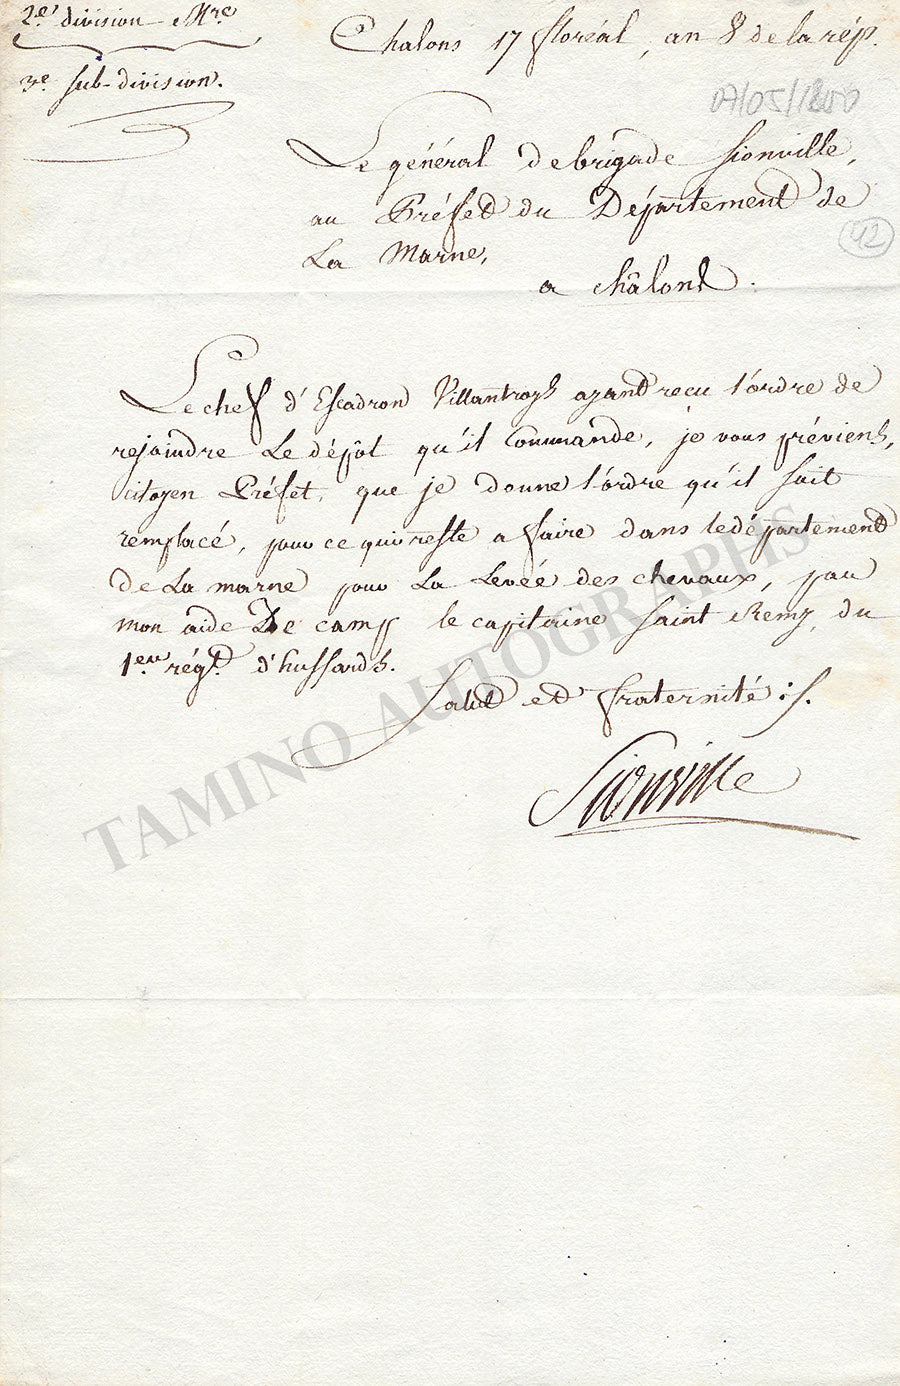 2e division Mre
3e sub-division.
Chalons 17 floréal, an 8 de la rép.
07/05/1800
Le général de brigade Sionville,
au Préfet du Département de
La Marne,
42
a Châlons.
Le chef d'Escadron Villantroys ayant reçu l'ordre de
rejoindre le dépôt qu'il Commande, je vous préviens,
citoyen Préfet, que je donne l'ordre qu'il soit
remplacé, pour ce qui reste a faire dans le département
de La marne pour La Levée des chevaux, par
mon aide De camp le capitaine Saint Remy, du
1er régt. d'hussards.
Salut et fraternité ./.
Sionville
TAMINO AUTOGRAPHS